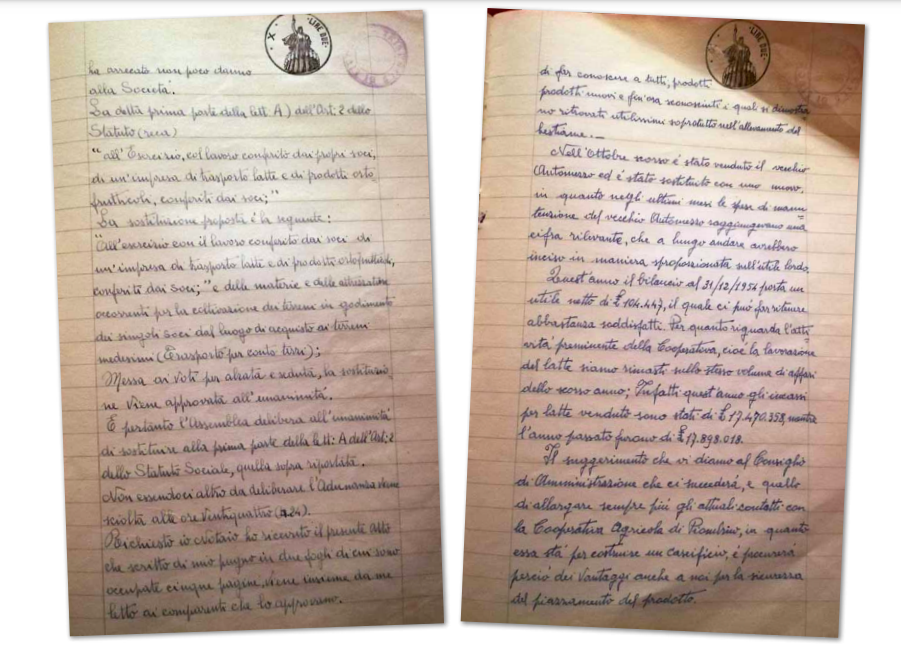 LIRE DUE
ha arrecato non poco danno
alla Società.
La detta prima parte della lett. A) dell'Art: 2 dello
Statuto (reca)
"all'Esercizio, col lavoro conferito dai propri soci,
di un'impresa di trasporto latte e di prodotti orto
frutticoli, conferiti dai soci;"
La sostituzione proposta è la seguente:
"All'esercizio con il lavoro conferito dai soci di
un'impresa di trasporto latte e di prodotti ortofrutticoli,
conferiti dai soci;" e delle materie e delle attrezzature
occorrenti per la coltivazione dei terreni in godimento
dei singoli soci dal luogo di acquisto ai terreni
medesimi (Trasporto per conto terzi);
Messa ai voti per alzata e seduta, la sostituzio
ne viene approvata all'unanimità.
E pertanto l'Assemblea delibera all'unanimità
di sostituire alla prima parte della lett: A dell'Art: 2
dello Statuto Sociale, quella sopra riportata.
Non essendoci altro da deliberare l'Adunanza viene
sciolta alle ore ventiquattro (24).
Richiesto io Notaio ho ricevuto il presente atto
che scritto di mio pugno in due fogli di cui sono
occupate cinque pagine, viene insieme da me
letto ai comparenti che lo approvano.
LIRE DUE
di far conoscere a tutti, prodotti
prodotti nuovi e fin'ora sconosciuti i quali si dimostra
no ritrovati utilissimi soprotutto nell'allevamento del
bestiame. —
Nell'Ottobre scorso è stato venduto il vecchio
Automezzo ed è stato sostituito con uno nuovo,
in quanto negli ultimi mesi le spese di manu=
tenzione del vecchio Automezzo raggiungevano una
cifra rilevante, che a lungo andare avrebbero
inciso in maniera sproporzionata sull'utile lordo.
Quest'anno il bilancio al 31/12/1954 porta un
utile netto di £ 104.447, il quale ci può far ritenere
abbastanza soddisfatti. Per quanto riguarda l'atti=
vità preminente della Cooperativa, cioè la lavorazione
del latte siamo rimasti sullo stesso volume di affari
dello scorso anno; Infatti quest'anno gli incassi
per latte venduto sono stati di £ 17.470.358, mentre
l'anno passato furono di £ 17.898.018.
Il suggerimento che vi diamo al Consiglio
di Amministrazione che ci succederà, è quello
di allargare sempre più gli attuali contatti con
la Cooperativa Agricola di Piombino, in quanto
essa sta per costruire un caseificio, e procurerà
perciò dei vantaggi anche a noi per la sicurezza
del piazzamento del prodotto.